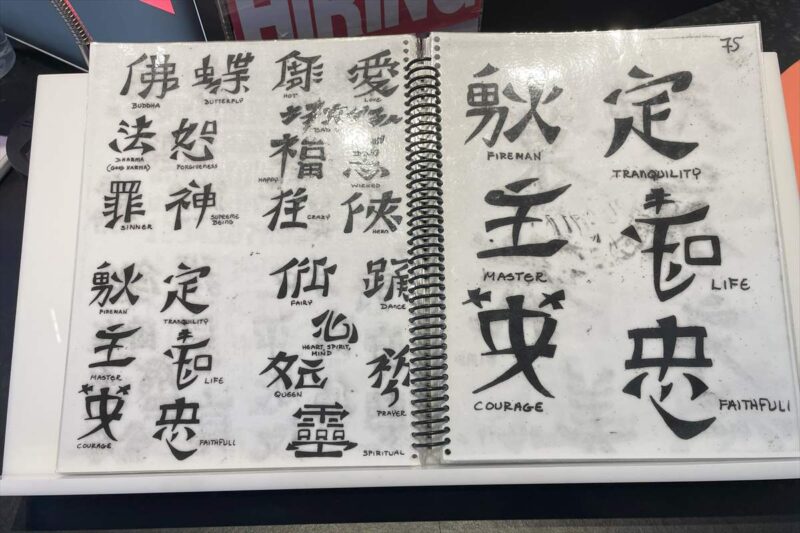 HIRING
佛 蝶 愛
BUDDHA BUTTERFLY HOT LOVE
BAD
法 恕 福 惡
DHARMA
(GOOD KARMA) FORGIVENESS HAPPY WICKED
罪 神 狂 俠
SINNER SUPREME
BEING CRAZY HERO
定
FIREMAN TRANQUILITY
主
MASTER LIFE
忠
COURAGE FAITHFULL
踊
FAIRY DANCE
心
HEART, SPIRIT,
MIND
QUEEN PRAYER
靈
SPIRITUAL
75
定
FIREMAN TRANQUILITY
主
MASTER LIFE
忠
COURAGE FAITHFULL